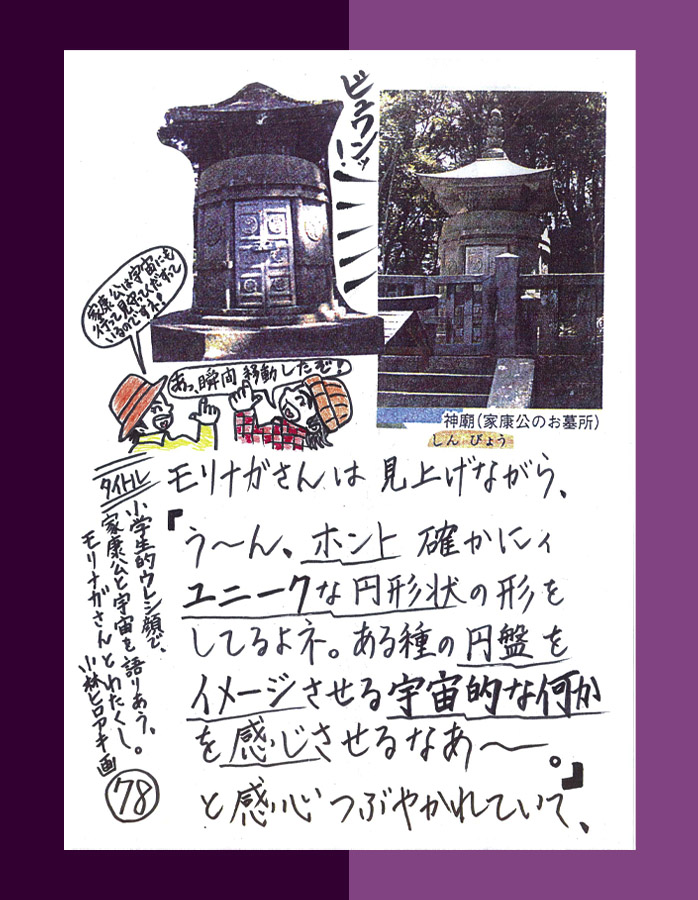 ビュウンッ!
家康公は宇宙にも
行って見守ってくだすって
いるのですね!
あっ、瞬間移動したぞ!
神廟(家康公のお墓所)
しんびょう
モリナガさんは見上げながら、
『う〜ん、ホント確かにィ
ユニークな円形状の形を
してるよネ。ある種の円盤を
イメージさせる宇宙的な何か
を感じさせるなあ〜。』
と感心つぶやかれていて、
タイトル
小学生的ウレシ顔で、
家康公と宇宙を語りあう。
モリナガさんとわたくし。
小林ヒロアキ画
78